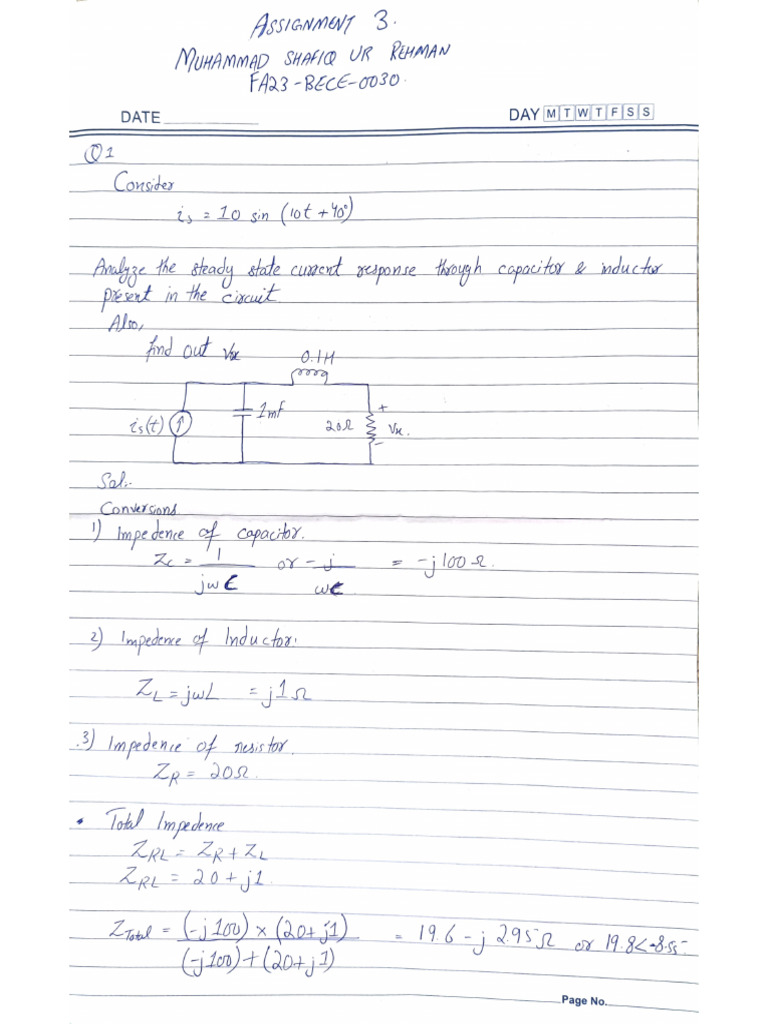 ASSIGNMENT 3.
MUHAMMAD SHAFIQ UR REHMAN
FA23-BECE-0030.
DATE DAY M T W T F S S
Q1
Consider
is = 10 sin (10t + 40°)
Analyze the steady state current response through capacitor & inductor
present in the circuit.
Also,
find out Vx
0.1H
is(t) 1mF 20Ω + Vx. -
Sol.
Conversions
1) Impedence of capacitor.
Zc = 1/jωC or -j/ωC = -j100 Ω.
2) Impedence of Inductor.
ZL = jωL = j1 Ω
3) Impedence of resistor.
ZR = 20Ω.
• Total Impedence
ZRL = ZR + ZL
ZRL = 20 + j1.
ZTotal = (-j100) × (20 + j1) / (-j100) + (20 + j1) = 19.6 - j 2.95 Ω or 19.8<-8.55
Page No.